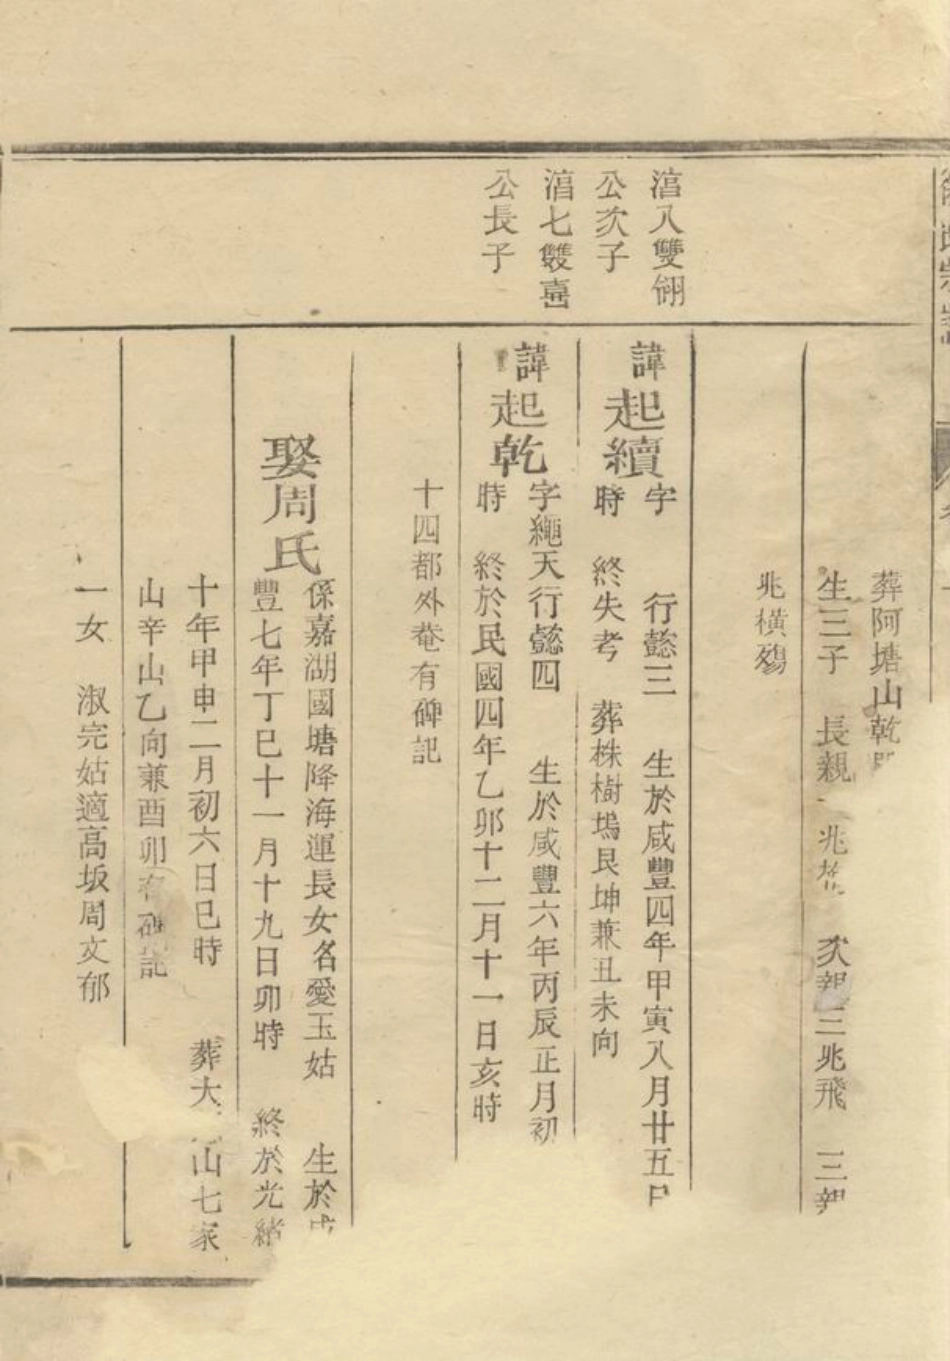 葬阿塘山乾
生三子 長親 兆 次親三兆飛 三親
兆橫殤
湻八雙翎
公次子
諱起續
字 行懿三 生於咸豐四年甲寅八月廿五日
時 終失考 葬株樹塢艮坤兼丑未向
湻七雙喜
公長子
諱起乾
字繩天行懿四 生於咸豐六年丙辰正月初
時 終於民國四年乙卯十二月十一日亥時
十四都外菴有碑記
娶周氏
係嘉湖國塘降海運長女名愛玉姑 生於咸
豐七年丁巳十一月十九日卯時 終於光緒
十年甲申二月初六日巳時 葬大 山七家
山辛山乙向兼酉卯有碑記
一女 淑完姑適高坂周文郁